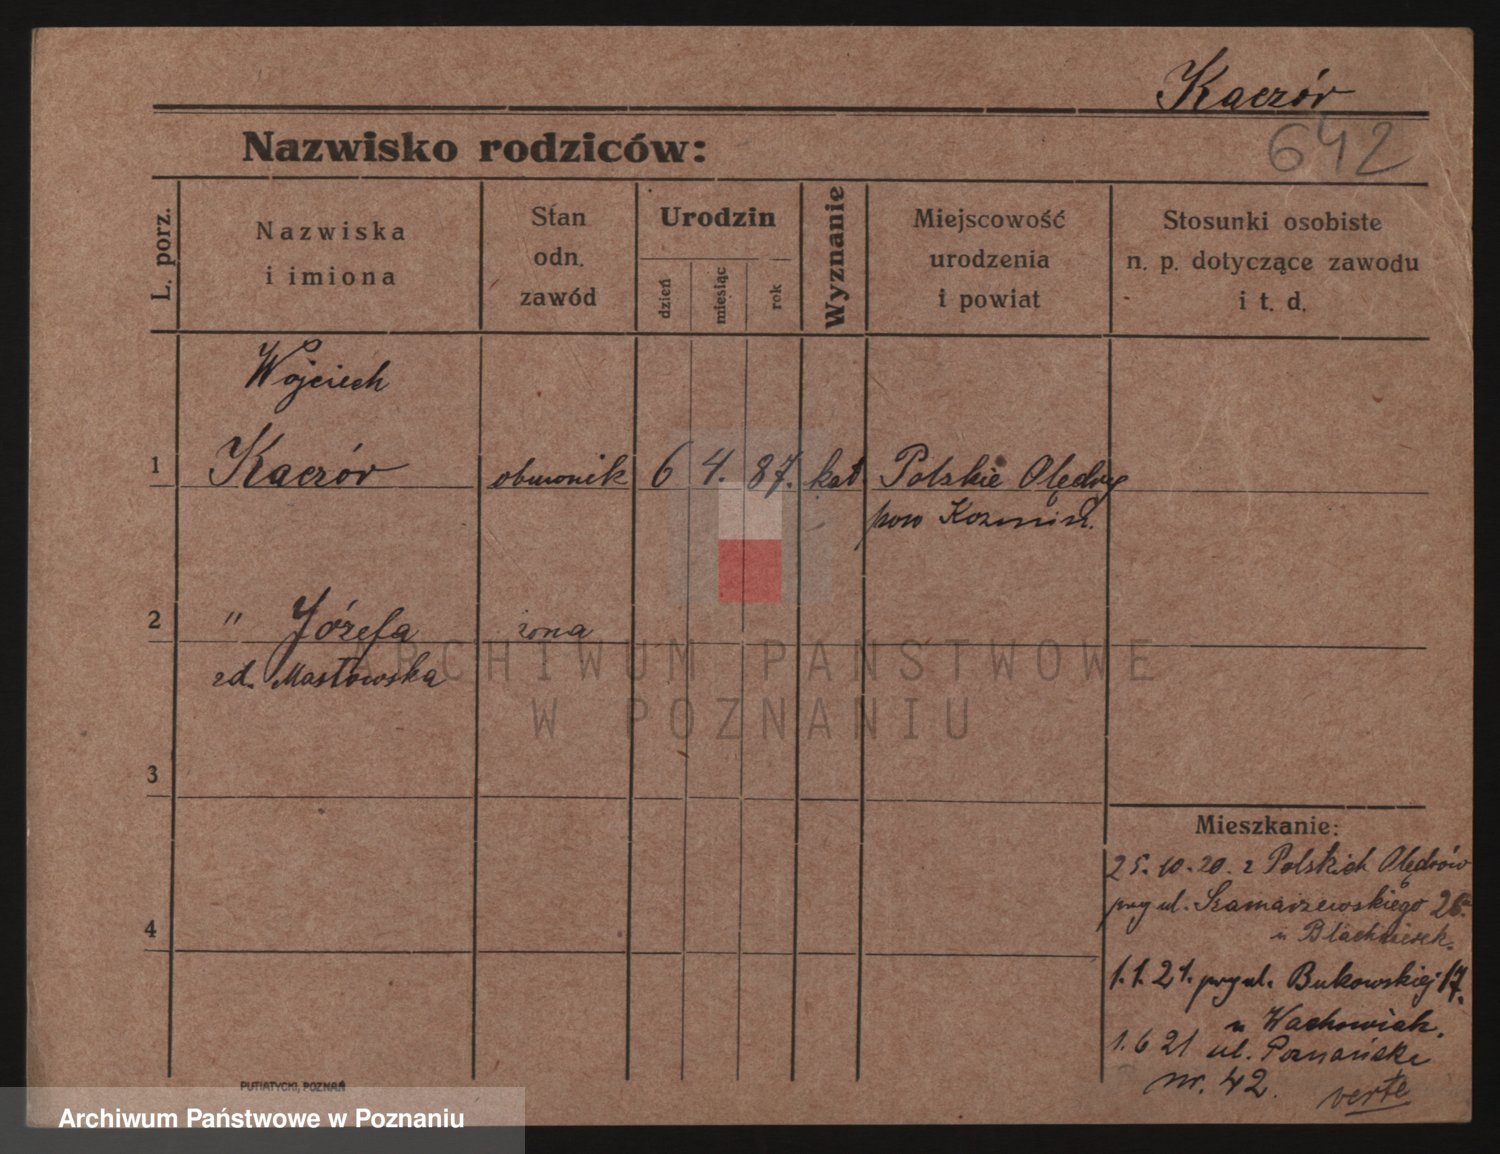 Kaczór
642
Nazwisko rodziców:
L. porz.
Nazwiska
i imiona
Stan
odn.
zawód
Urodzin
dzień
miesiąc
rok
Wyznanie
Miejscowość
urodzenia
i powiat
Stosunki osobiste
n. p. dotyczące zawodu
i t. d.
Wojciech
1 Kaczór obuwnik 6 4. 87. kat. Polskie Olędry
pow Kozmin.
2 " Józefa żona
zd. Masłowska
3
4
Mieszkanie:
25.10.20. z Polskich Olędrów
przy ul. Szamarzewskiego 26.
u
1.1.21. przy ul. Bukowskiej 17.
u Wachowiak.
1.6 21 ul. Poznańska
nr. 42.
verte
PUTIATYCKI, POZNAŃ
ARCHIWUM PAŃSTWOWE
W POZNANIU
Archiwum Państwowe w Poznaniu